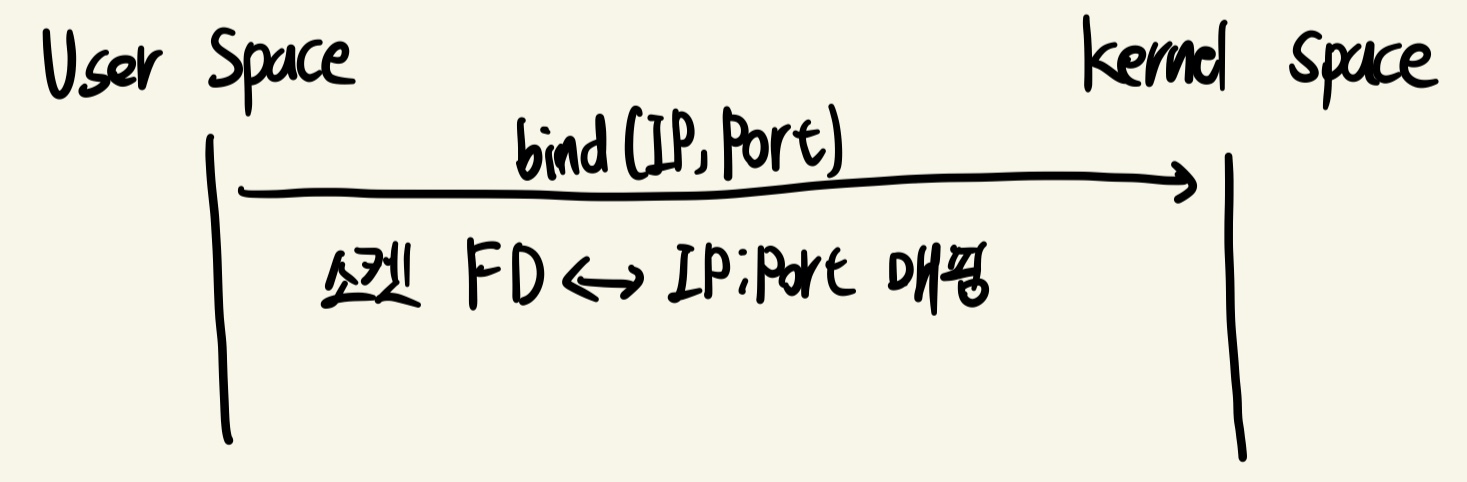 User Space
kernel space
bind (IP, Port)
소켓 FD ↔ IP:Port 매핑